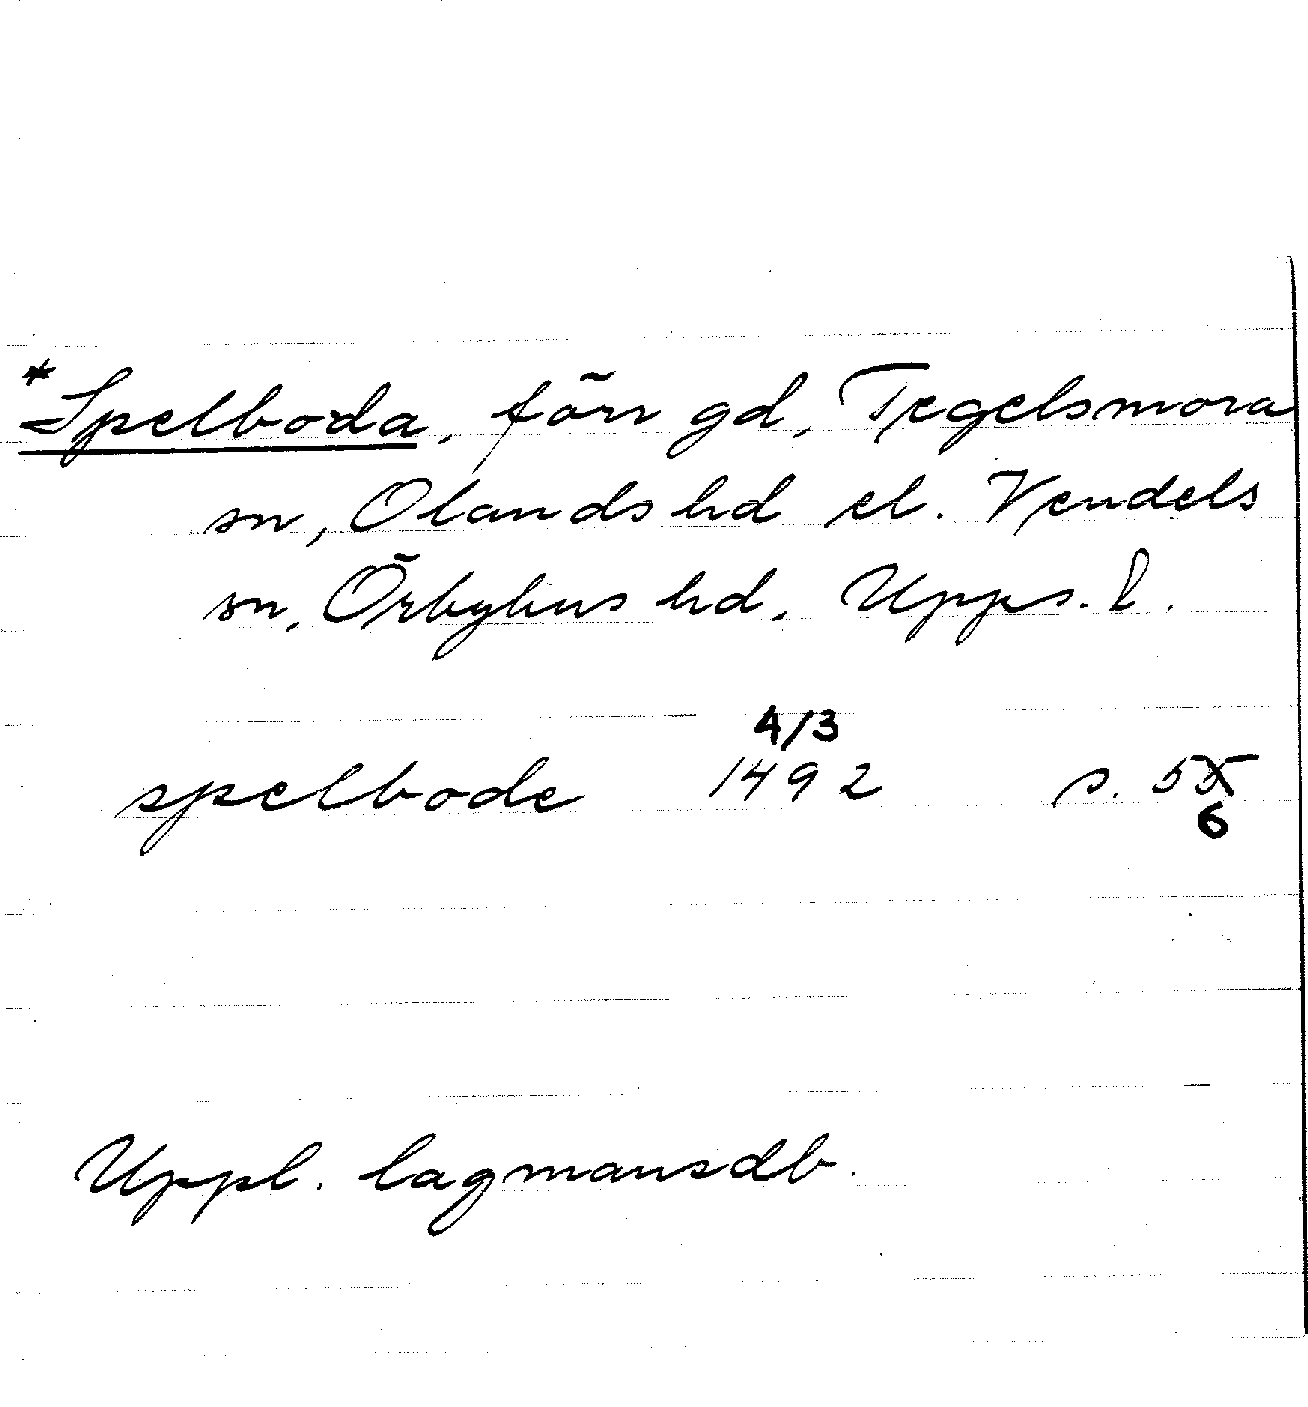 *Spelboda, förr gd, Tegelsmora
sn, Olands hd el. Vendels
sn, Örbyhus hd, Upps. l.
4/3
spelbode 1492 s. 55
6
Uppl. lagmansdb.